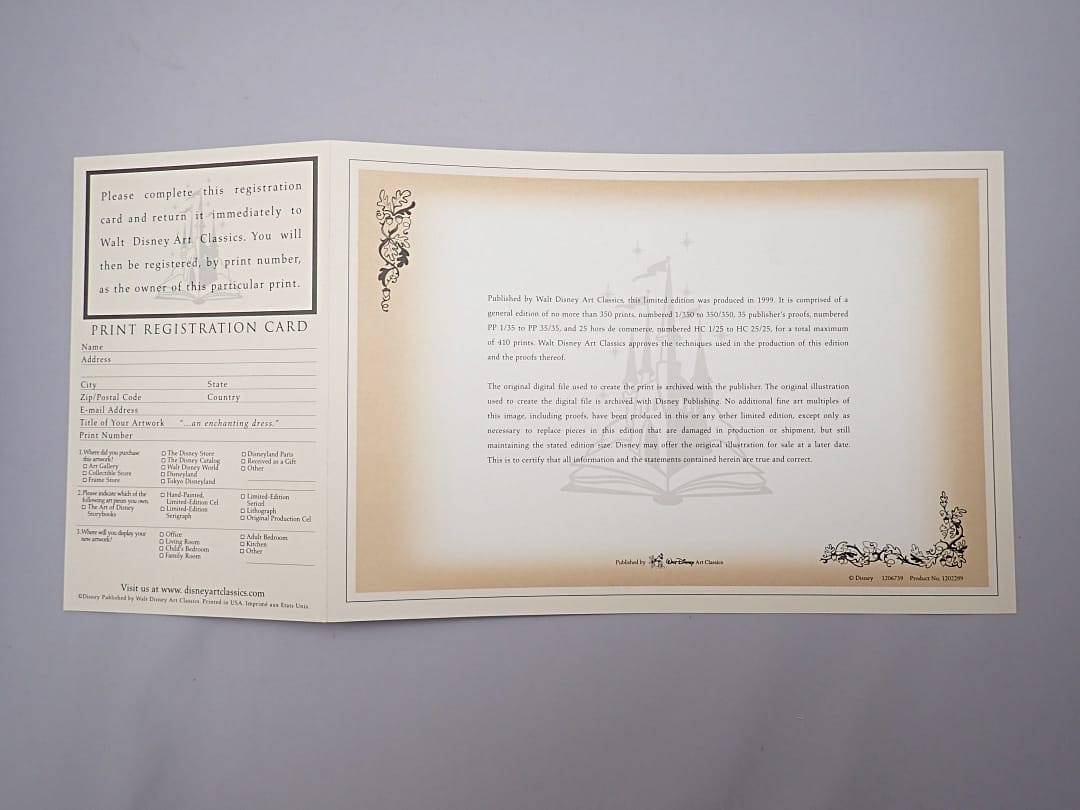 Please complete this registration
card and return it immediately to
Walt Disney Art Classics. You will
then be registered, by print number,
as the owner of this particular print.
PRINT REGISTRATION CARD
Name
Address
City State
Zip/Postal Code Country
E-mail Address
Title of Your Artwork "...an enchanting dress."
Print Number
1. Where did you purchase
this artwork?
□ Art Gallery
□ Collectible Store
□ Frame Store
□ The Disney Store
□ The Disney Catalog
□ Walt Disney World
□ Disneyland
□ Tokyo Disneyland
□ Disneyland Paris
□ Received as a Gift
□ Other
2. Please indicate which of the
following art pieces you own.
□ The Art of Disney
Storybooks
□ Hand-Painted,
Limited-Edition Cel
□ Limited-Edition
Serigraph
□ Limited-Edition
Sericel
□ Lithograph
□ Original Production Cel
3. Where will you display your
new artwork?
□ Office
□ Living Room
□ Child's Bedroom
□ Family Room
□ Adult Bedroom
□ Kitchen
□ Other
Visit us at www. disneyartclassics.com
©Disney Published by Walt Disney Art Classics. Printed in USA. Imprimé aux Etats Unis.
Published by Walt Disney Art Classics, this limited edition was produced in 1999. It is comprised of a
general edition of no more than 350 prints, numbered 1/350 to 350/350, 35 publisher's proofs, numbered
PP 1/35 to PP 35/35, and 25 hors de commerce, numbered HC 1/25 to HC 25/25, for a total maximum
of 410 prints. Walt Disney Art Classics approves the techniques used in the production of this edition
and the proofs thereof.
The original digital file used to create the print is archived with the publisher. The original illustration
used to create the digital file is archived with Disney Publishing. No additional fine art multiples of
this image, including proofs, have been produced in this or any other limited edition, except only as
necessary to replace pieces in this edition that are damaged in production or shipment, but still
maintaining the stated edition size. Disney may offer the original illustration for sale at a later date.
This is to certify that all information and the statements contained herein are true and correct.
Published by Walt Disney Art Classics
© Disney 1206739 Product No. 1202289